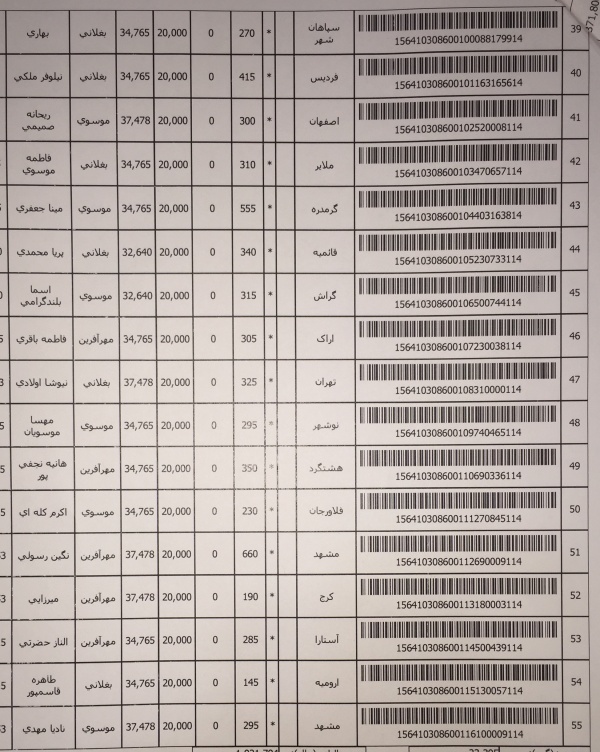 39 156410308600100088179914 سپاهان شهر * 270 0 20,000 34,765 بغلاني بهاري
40 156410308600101163165614 فرديس * 415 0 20,000 34,765 بغلاني نيلوفر ملكي
41 156410308600102520008114 اصفهان * 300 0 20,000 37,478 موسوي ريحانه صميمي
42 156410308600103470657114 ملاير * 310 0 20,000 34,765 بغلاني فاطمه موسوي
43 156410308600104403163814 گرمدره * 555 0 20,000 34,765 موسوي مينا جعفري
44 156410308600105230733114 قائميه * 340 0 20,000 32,640 بغلاني پريا محمدي
45 156410308600106500744114 گراش * 315 0 20,000 32,640 موسوي اسما بلندگرامي
46 156410308600107230038114 اراک * 305 0 20,000 34,765 مهرآفرين فاطمه باقري
47 156410308600108310000114 تهران * 325 0 20,000 37,478 بغلاني نيوشا اولادي
48 156410308600109740465114 نوشهر * 295 0 20,000 34,765 موسوي مهسا موسويان
49 156410308600110690336114 هشتگرد * 350 0 20,000 34,765 مهرآفرين هانيه نجفي پور
50 156410308600111270845114 فلاورجان * 230 0 20,000 34,765 موسوي اكرم كله اي
51 156410308600112690009114 مشهد * 660 0 20,000 37,478 مهرآفرين نگين رسولي
52 156410308600113180003114 كرج * 190 0 20,000 37,478 مهرآفرين ميرزايي
53 156410308600114500439114 آستارا * 285 0 20,000 34,765 مهرآفرين الناز حضرتي
54 156410308600115130057114 اروميه * 145 0 20,000 34,765 بغلاني طاهره قاسمپور
55 156410308600116100009114 مشهد * 295 0 20,000 37,478 موسوي ناديا مهدي